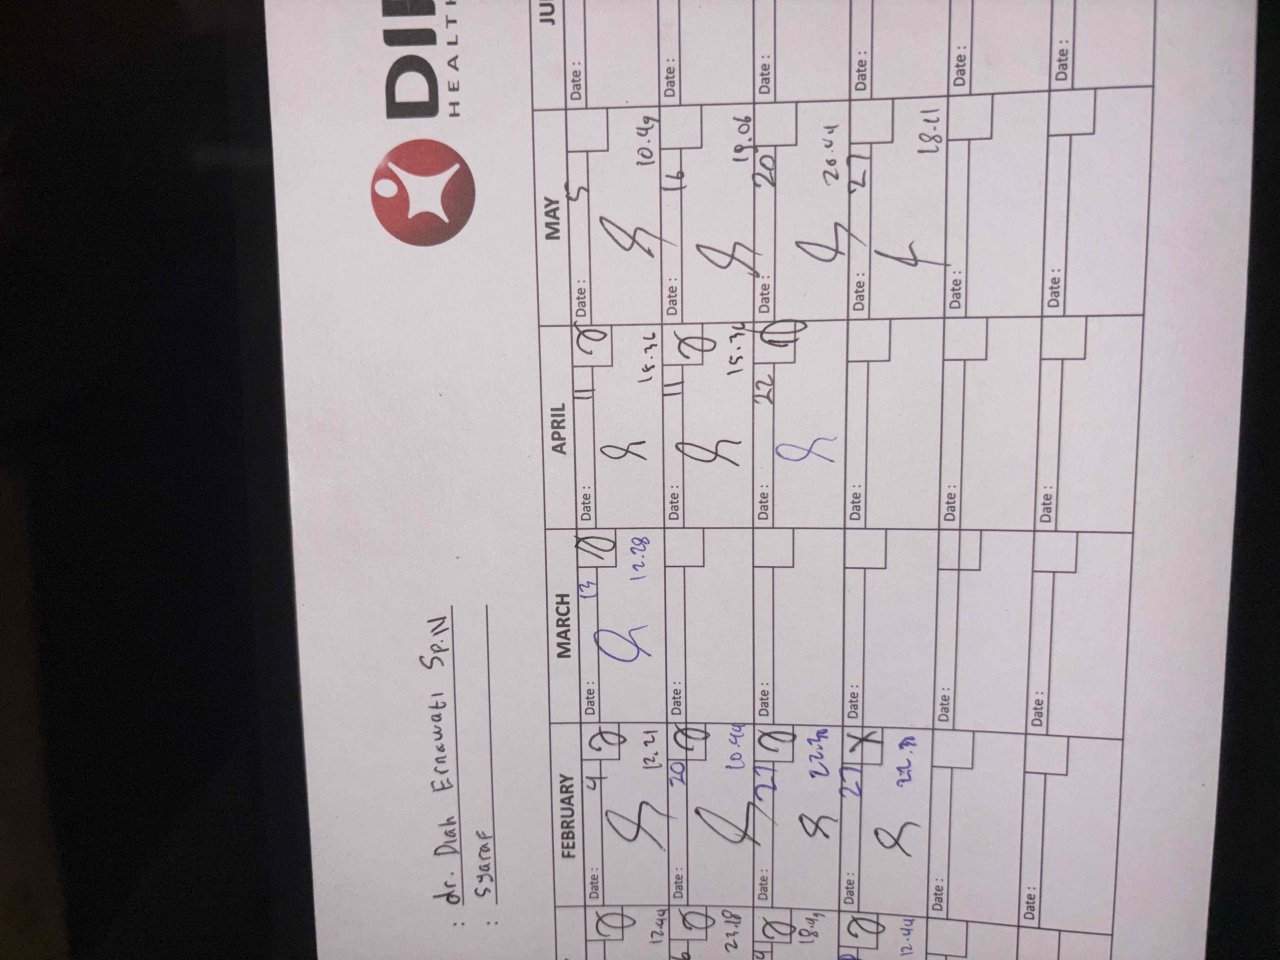 DI
HEALTH
: dr. Diah Ernawati Sp.N
: Syaraf
FEBRUARY MARCH APRIL MAY JU
Date: 4 Date: 13 Date: 11 Date: 5 Date:
12.44 12.21 12.28 18.36 10.49
Date: 20 Date: Date: 11 Date: 16 Date:
23.18 10.44 15.36 19.06
Date: 27 Date: Date: 22 Date: 20 Date:
18.49 22.30 20.44
Date: 27 X Date: Date: Date: 27 Date:
12.44 18.21
Date: Date: Date: Date: Date:
Date: Date: Date: Date: Date: